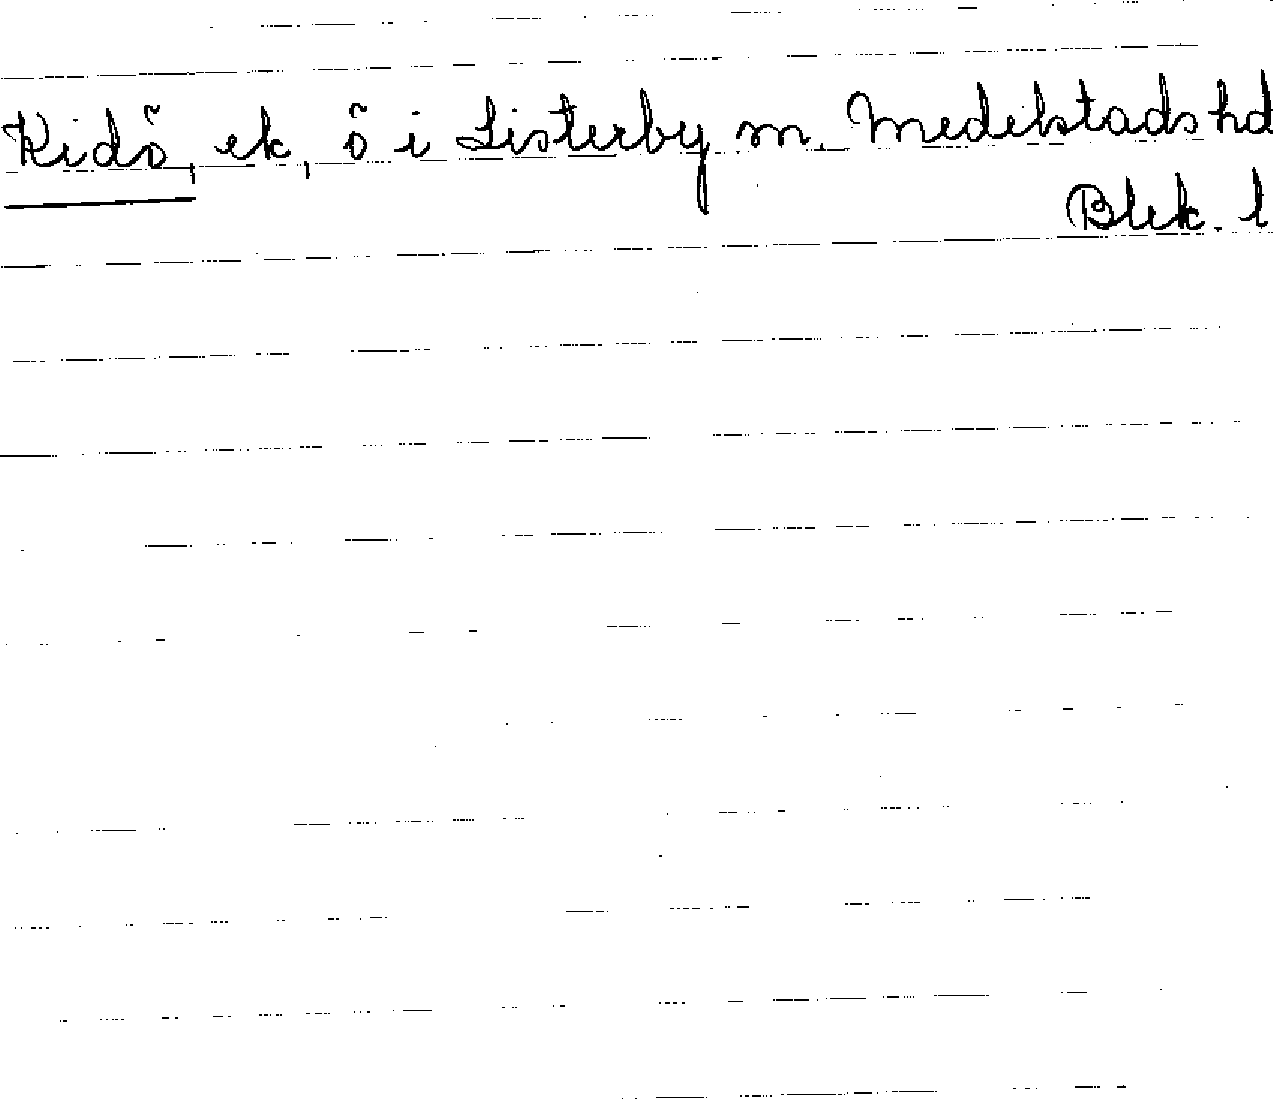 Kidö, ek, ö i Listerby sn. Medelstads hd
Blek. l